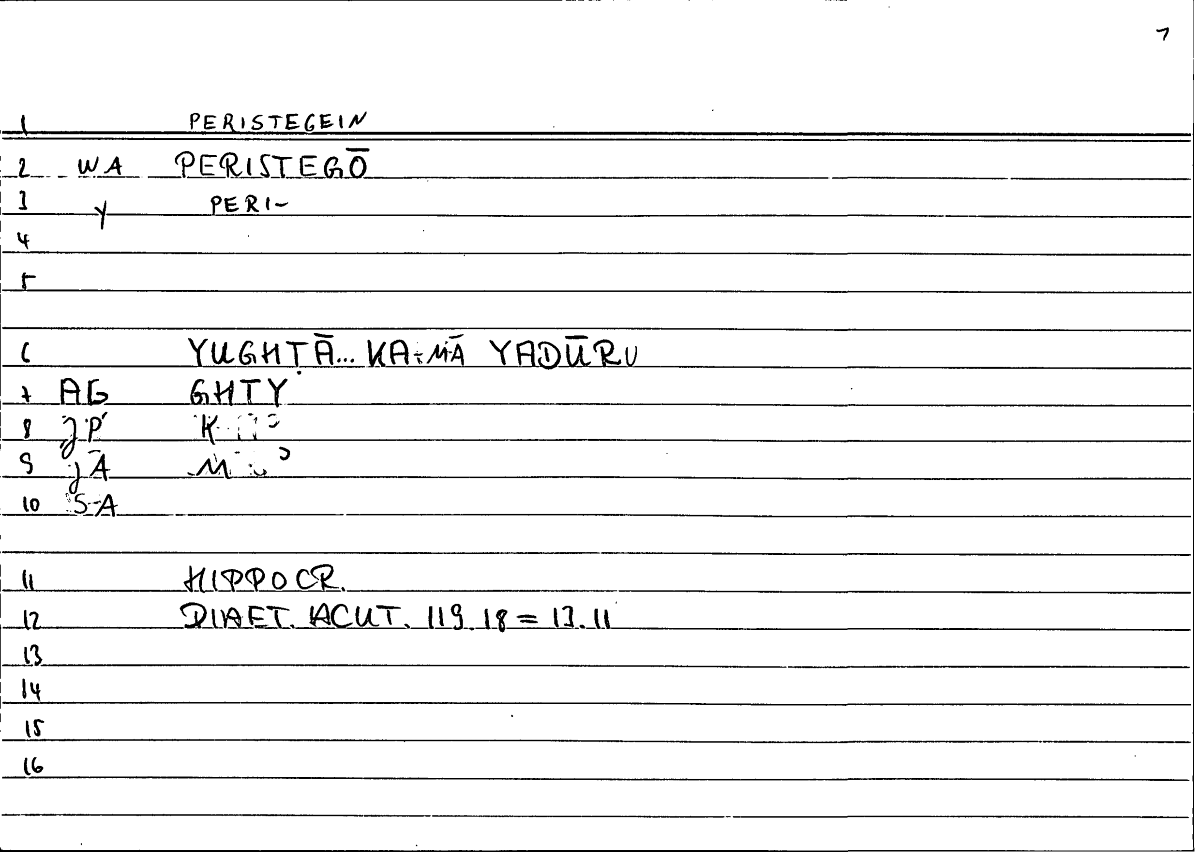 7
1 PERISTEGEIN
2 WA PERISTEGŌ
3 Y PERI-
4
5
6 YUGHṬĀ... KA-MĀ YADŪRU
7 AG GHTY
8 JP K
9 JA M
10 S-A
11 HIPPOCR.
12 DIAET. ACUT. 119.18 = 13.11
13
14
15
16